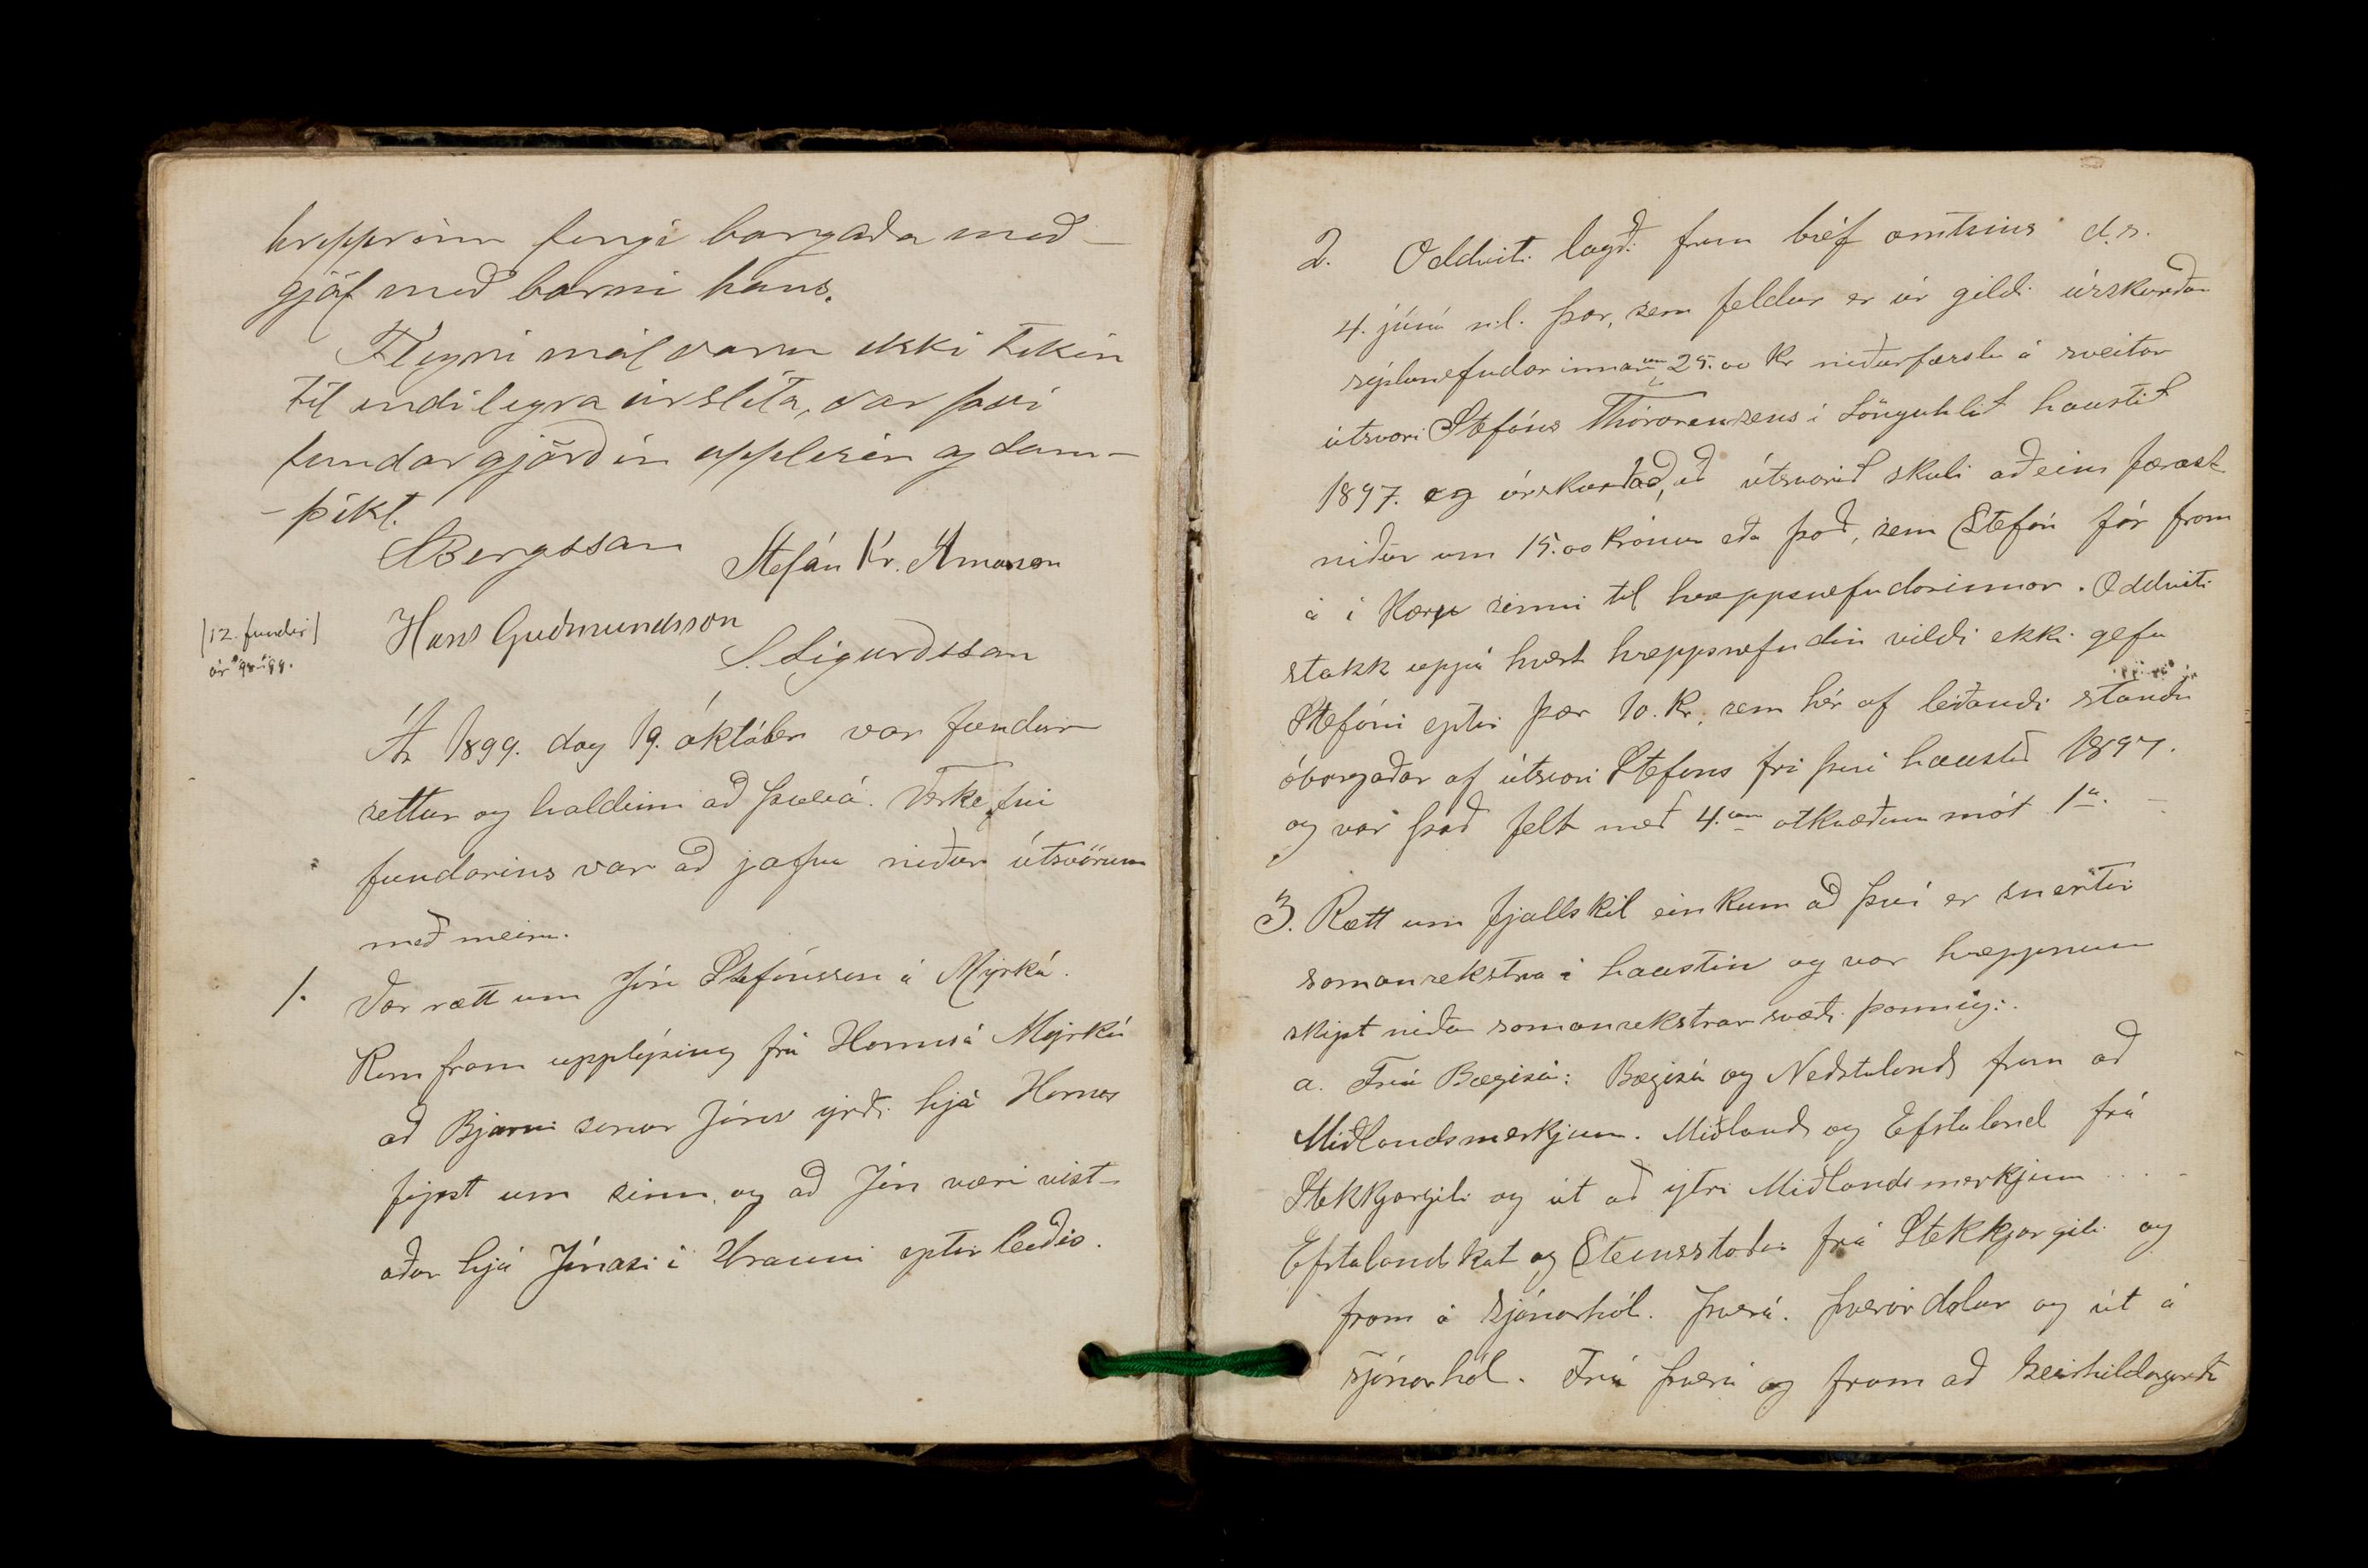 hreppurinn fengi borgaða með-
gjöf með barni hans.
Fleyri mál varu ekki tekin
til endilegra úrslita, var því
fundargjörðin upplesin og sam-
-þikt.
SBergsson Stefán Kr. Árnason
Hans Guðmundsson
S. Sigurðsson
|12. fundir|
ár 98-99.
Ár 1899. dag 19. október var fundur
settur og haldinn að Þverá. Verkefni
fundarins var að jafna niður útsvörum
með meiru.
1. Var rætt um Jón Stefánsson á Myrká.
Kom fram upplýsing frá Hannesi á Myrká
að Bjarni sonur Jóns yrði hjá Hannes
fyrst um sinn, og að Jón væri vist-
aður hjá Jónasi í Hrauni eptir leiðis.
2. Oddviti lagði fram bréf amtsins d.s.
4. júní n.l. þar, sem feldur er úr gildi úrskurður
sýslunefndarinnar um 25.00 kr niðurfærslu á sveitar
útsvari Stefáns Thorarensens í Lönguhlíð haustið
1897. og úrskurðað, að útsvarið skuli aðeins færast
niður um 15.00 krónur eða það, sem Stefán fór fram
á í kæru sinni til hreppsnefndarinnar. Oddviti
stakk uppá hvert hreppsnefndin vildi ekki gefa
Stefáni eptir þær 10. kr, sem hér af leiðandi standa
óborgaðar af útsvari Stefans frá því haustið 1897.
og var það felt með 4.um atkvæðum mót 1u.
3. Rætt um fjallskil einkum að því er snertir
samanrekstra á haustin og var hreppnum
skipt niður samanrekstrar svæði þannig:
a. Frá Bægisá: Bægisá og Neðstaland fram að
Miðlandsmerkjum. Miðland og Efstaland frá
Stekkjargili og út að ytri Miðlandsmerkjum
Efstalandskot og Steinsstaðir frá Stekkjargili og
fram á Sjónarhól. Þverá. Þverárdalur og út á
Sjónarhól. Frá Þverá og fram að Geirhildargarði